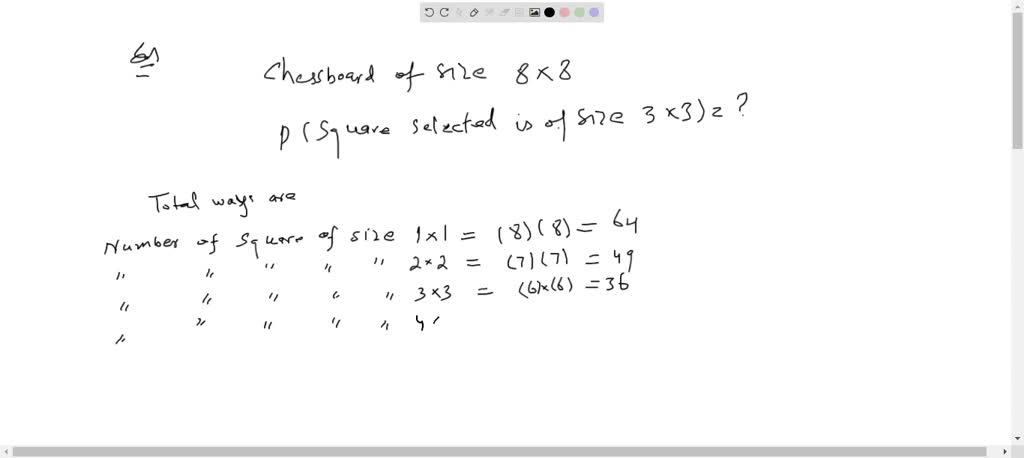 Chessboard of size 8×8
P(Square selected is of size 3×3)=?
Total ways are
Number of Square of size 1×1 = (8)(8) = 64
" " " " " 2×2 = (7)(7) = 49
" " " " " 3×3 = (6)×(6) = 36
" " " " " 4